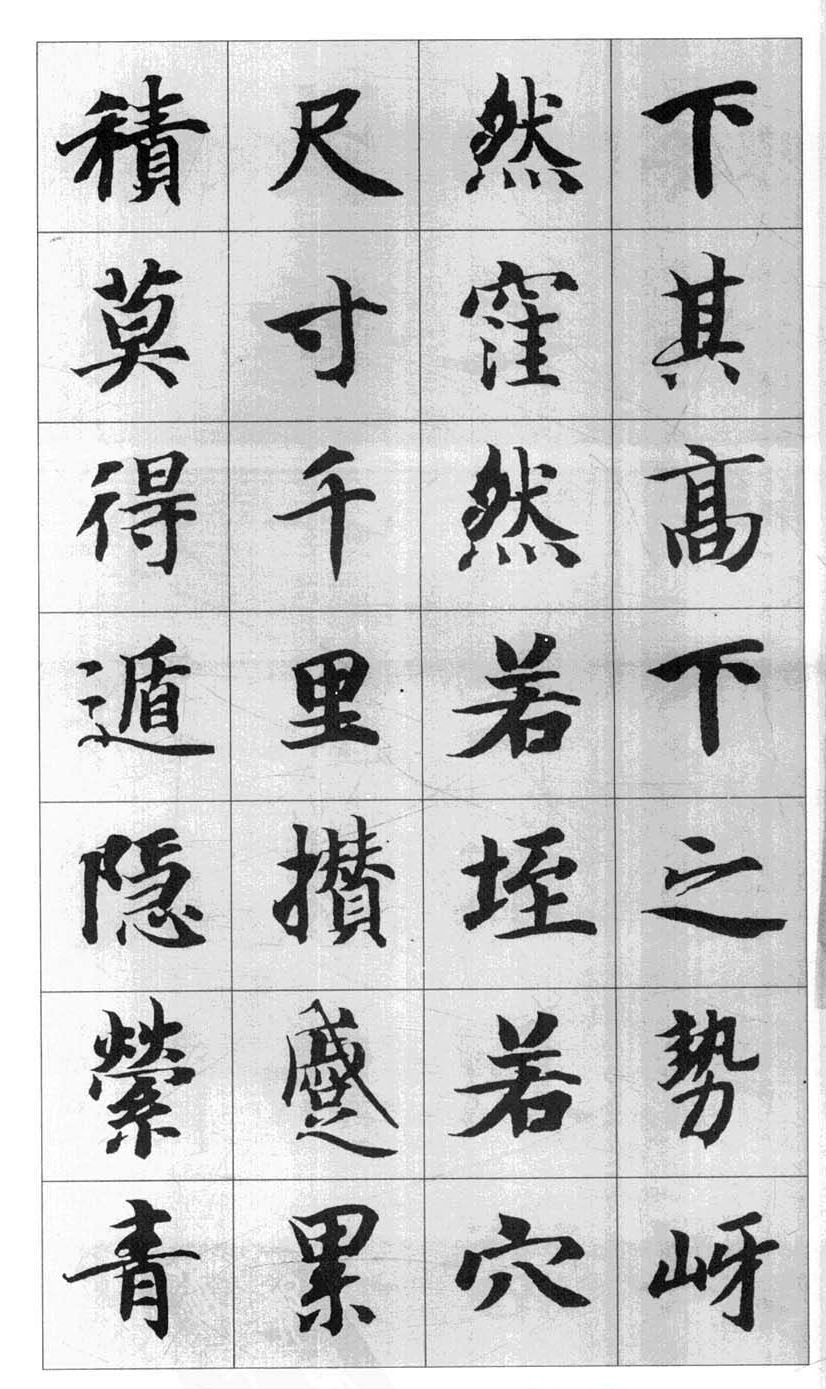 下其高下之勢岈
然窪然若垤若穴
尺寸千里攢蹙累
積莫得遁隐縈青